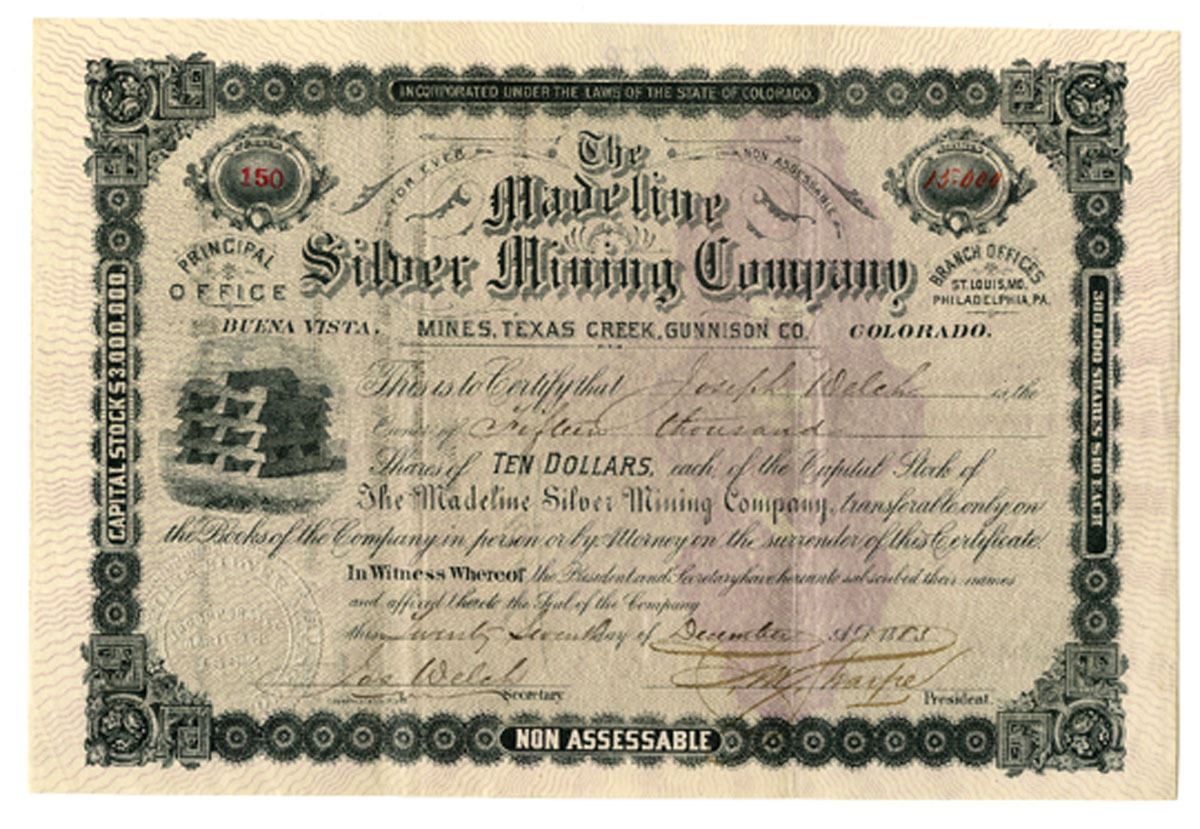 INCORPORATED UNDER THE LAWS OF THE STATE OF COLORADO.
NUMBER
150
SHARES
15.000
FOR EVER
NON ASSESSABLE
The
Madeline
Silver Mining Company
PRINCIPAL
OFFICE
BRANCH OFFICES
ST. LOUIS, MO.
PHILADELPHIA, PA.
BUENA VISTA. MINES, TEXAS CREEK, GUNNISON CO. COLORADO.
CAPITAL STOCK $3.000.000.
300.000 SHARES $10 EACH
This is to Certify that Joseph Welch is the
Owner of Fifteen thousand
Shares of TEN DOLLARS, each, of the Capital Stock of
The Madeline Silver Mining Company, transferable only on
the Books of the Company in person or by Attorney on the surrender of this Certificate.
In Witness Whereof the President and Secretary have hereunto subscribed their names
and affixed thereto the Seal of the Company
this Twenty Seventh day of December A.D. 1883
Jos Welch Secretary
Sharpe President.
NON ASSESSABLE